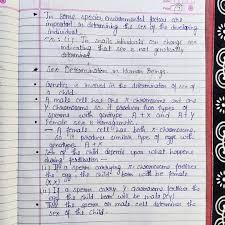 • In some species environmental factors are
important in determining the sex of the developing
individual.
ex: (i) In snails individuals can change sex
indicating that sex is not genetically
determined.
• Sex Determination in Human Beings
• Genetics is involved in the determination of sex of
a child.
• A male cell has one X chromosome and one
Y chromosome so it produces two types of
sperms with genotype A + X and A + Y
• Female sex is homogametic
- A female cell has both X chromosome,
so it produces similar type of eggs with
genotype A + X
• Sex of the child depends upon what happens
during fertilisation -
(i) If a sperm carrying X chromosome fertilises
the egg the child born will be female
(XX)
(ii) If a sperm carrying Y chromosome fertilises the
egg the child born will be male (XY)
• Thus the sperm or male cell determines the
sex of the child.